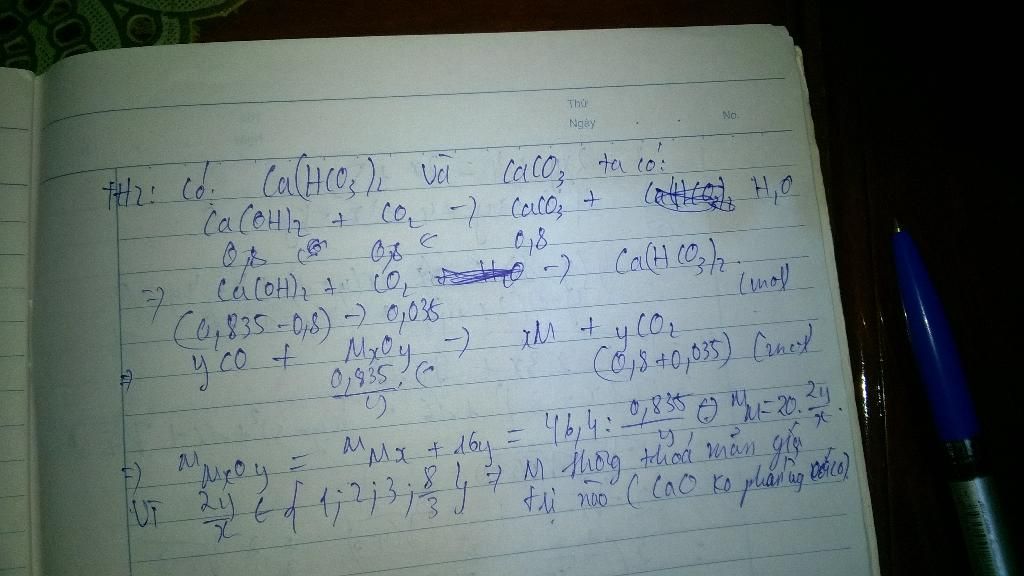 Thứ
Ngày . . No.
TH2: Có: Ca(HCO3)2 và CaCO3 ta có:
Ca(OH)2 + CO2 -> CaCO3 + H2O
0,8 0,8 <- 0,8
=> Ca(OH)2 + CO2 -> Ca(HCO3)2.
(0,835-0,8) -> 0,035 (mol
=> yCO + MxOy -> xM + yCO2
0,835/y <- (0,8+0,035) (mol
=> M MxOy = M Mx + 16y = 46,4 : 0,835/y <=> M M = 20. 2y/x.
Vì 2y/x ∈ { 1; 2; 3; 8/3 } => M không thoả mãn giá
trị nào ( CaO ko phản ứng CO).